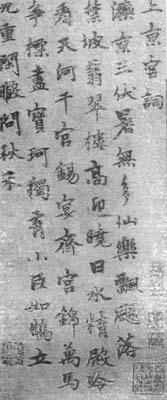 上京宮詞
灤京三伏暑無多仙樂飄颻落
禁坡翡翠樓高迎曉日水精殿冷
看天河千官錫宴齊宮錦萬馬
爭標盡寶珂獨有小臣如鶴立
九重閒暇問秋禾